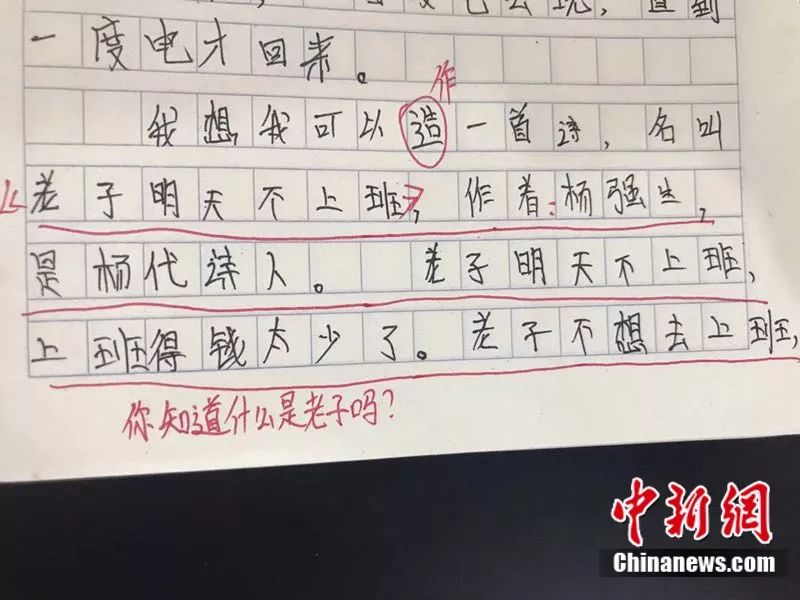 ，直到
一度电才回来。
作
我想，我可以造一首诗，名叫
《老子明天不上班》，作着：杨强生，
是杨代诗人。 老子明天不上班，
上班得钱太少了。老子不想去上班，
你知道什么是老子吗？
中新网
Chinanews.com